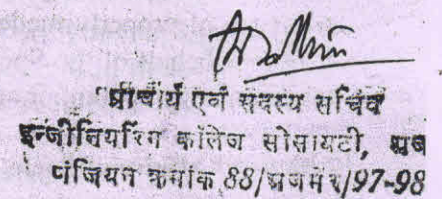 प्राचार्य एवं सदस्य सचिव
इन्जीनियरिंग कॉलेज सोसायटी, अज
पंजियन कमांक 88/अजमेर/97-98